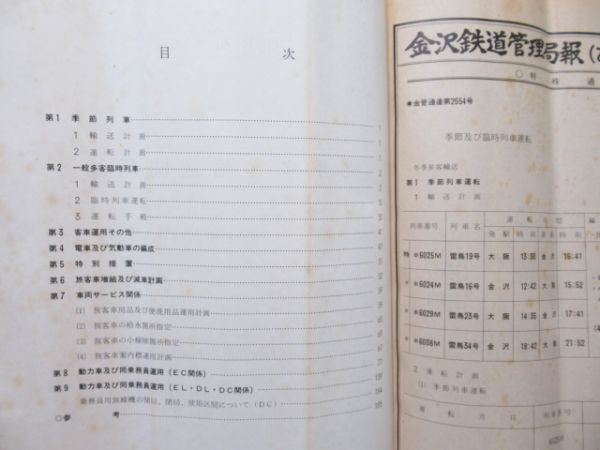 目次
第1 季節列車 1
1 輸送計画 1
2 運転計画
第2 一般多客臨時列車
1 輸送計画
2 臨時列車運転
3 運転手配
第3 客車運用その他
第4 電車及び気動車の編成
第5 特別措置
第6 旅客車増結及び減車計画
第7 車両サービス関係
(1) 旅客車用品及び便洗用品運用計画
(2) 旅客車の給水箇所指定
(3) 旅客車の小掃除箇所指定
(4) 旅客車案内標運用計画
第8 動力車及び同乗務員運用(EC関係)
第9 動力車及び同乗務員運用(EL・DL・DC関係)
乗務員用無線機の開局、閉局、使用区間について(DC)
○参考
金沢鉄道管理局報
○特殊通
●金管通達第2554号
季節及び臨時列車運転
冬季多客輸送
第1 季節列車運転
1 輸送計画
列車番号 列車名 運転区間
発駅 時刻 着駅 時刻
特 ※6025M 雷鳥19号 大阪 13 金沢 16:41
※6024M 雷鳥16号 金沢 12:42 大阪 15:52
※6029M 雷鳥23号 大阪 14:35 金沢 17:41
※6038M 雷鳥34号 金沢 18:42 大阪 21:52
2 運転計画
(1) 季節列車運転
運転月日 列車番号